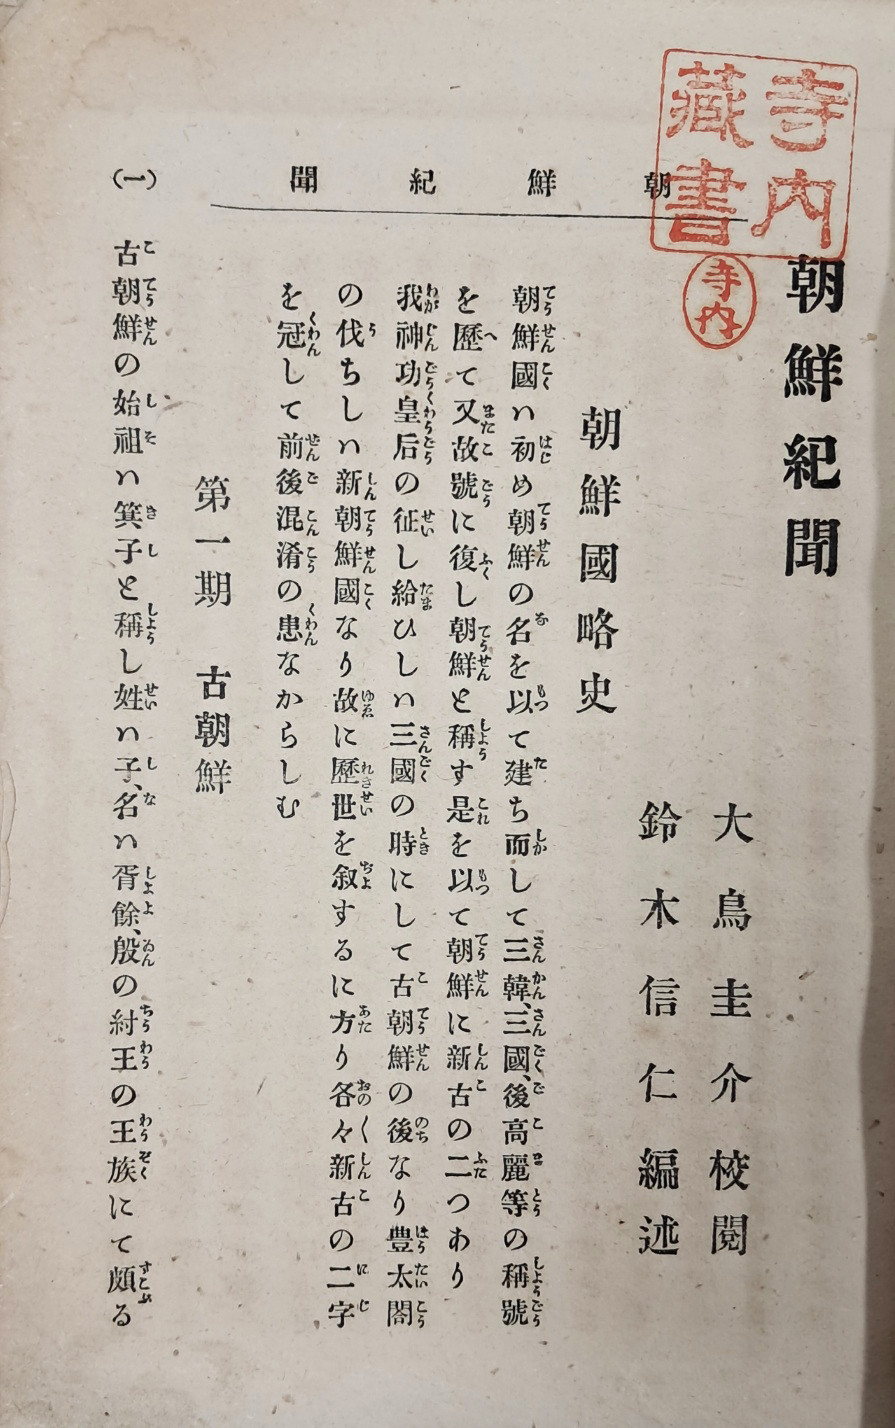 寺内
藏書
寺内
朝鮮紀聞
大鳥圭介校閲
鈴木信仁編述
朝鮮國略史
朝鮮國ハ初め朝鮮の名を以て建ち而して三韓、三國、後高麗等の稱號
を歷て又故號に復し朝鮮と稱す是を以て朝鮮に新古の二つあり
我神功皇后の征し給ひしハ三國の時にして古朝鮮の後なり豊太閤
の伐ちしハ新朝鮮國なり故に歷世を叙するに方り各々新古の二字
を冠して前後混淆の患なからしむ
第一期 古朝鮮
古朝鮮の始祖ハ箕子と稱し姓ハ子、名ハ胥餘、殷の紂王の王族にて頗る
朝鮮紀聞
(一)